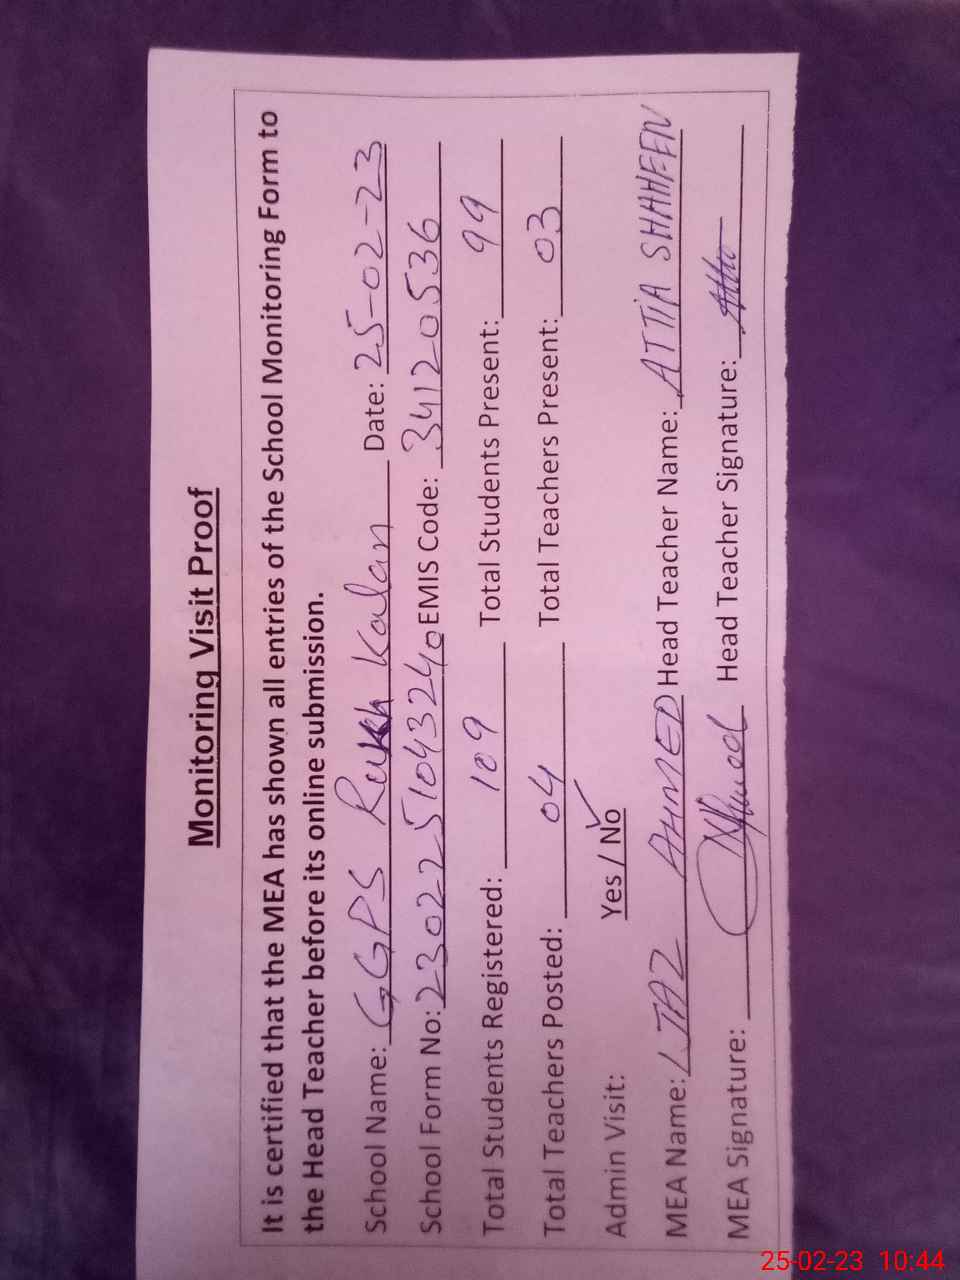 Monitoring Visit Proof
It is certified that the MEA has shown all entries of the School Monitoring Form to
the Head Teacher before its online submission.
School Name: GGPS Rukh Kalan Date: 25-02-23
School Form No: 2302251043240 EMIS Code: 34120536
Total Students Registered: 109 Total Students Present: 99
Total Teachers Posted: 04 Total Teachers Present: 03
Admin Visit: Yes / No ✓
MEA Name: IJAZ AHMED Head Teacher Name: ATTIA SHAHEEN
MEA Signature: Head Teacher Signature:
25-02-23 10:44